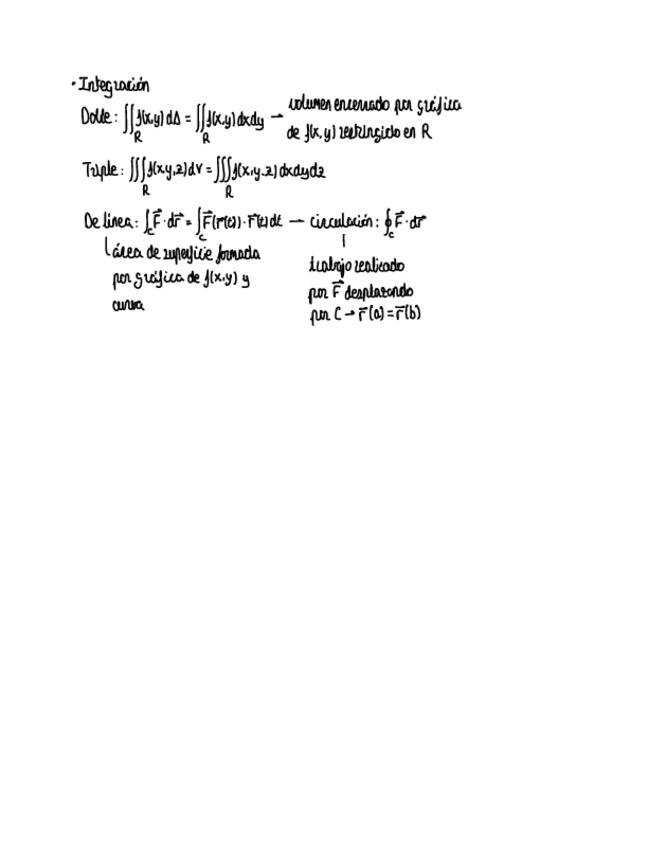 · Integración
Doble: ∬_R f(x,y) dA = ∬_R f(x,y) dxdy → volumen encerrado por gráfica
de f(x,y) restringido en R
Triple: ∭_R f(x,y,z) dV = ∭_R f(x,y,z) dxdydz
De línea: ∫_C F⃗ · dr⃗ = ∫_C F⃗(r⃗(t)) · r⃗'(t) dt — circulación: ∮_C F⃗ · dr⃗
área de superficie formada
por gráfica de f(x,y) y
curva
trabajo realizado
por F⃗ desplazando
por C → r⃗(a) = r⃗(b)